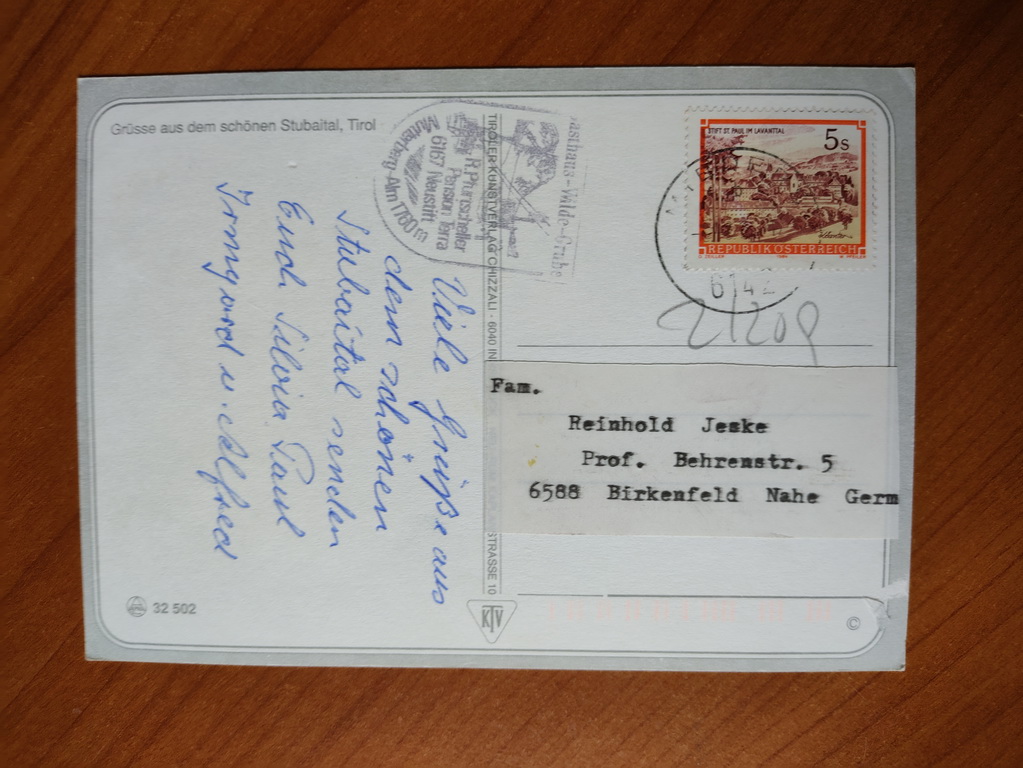 Grüsse aus dem schönen Stubaital, Tirol
Viele Grüße aus
dem schönen
Stubaital senden
Euch Silvia Paul
Irmgard u. Alfred
Gasthaus-Wilde-Grube
R. Pfurtscheller
Pension Terra
6167 Neustift
Mutterberg-Alm 1760m
TIROLER KUNSTVERLAG CHIZZALI · 6040 IN
STRASSE 10
STIFT ST. PAUL IM LAVANTTAL
5s
REPUBLIK ÖSTERREICH
O. ZEILER 1984 W. PFEILER
614
Fam.
Reinhold Jeske
Prof. Behrenstr. 5
6588 Birkenfeld Nahe Germ
32 502
KTV
©